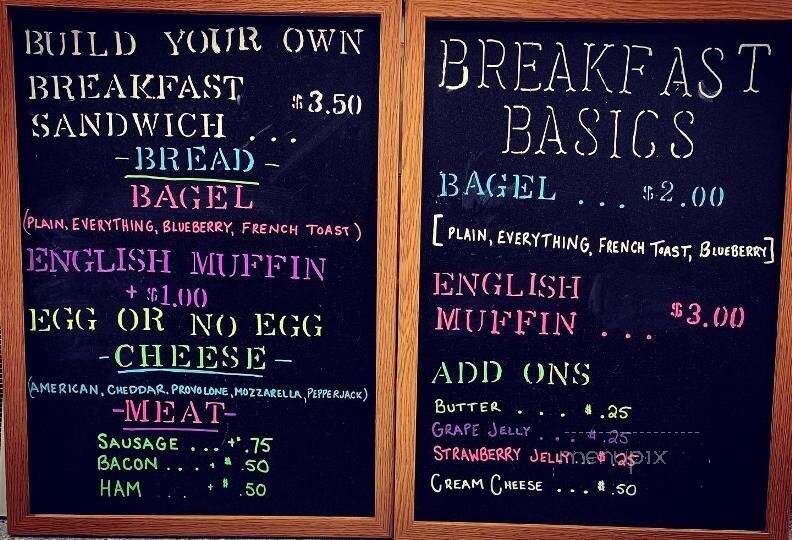 BUILD YOUR OWN
BREAKFAST
SANDWICH ... $3.50
-BREAD-
BAGEL
(PLAIN, EVERYTHING, BLUEBERRY, FRENCH TOAST)
ENGLISH MUFFIN
+ $1.00
EGG OR NO EGG
-CHEESE-
(AMERICAN, CHEDDAR, PROVOLONE, MOZZARELLA, PEPPERJACK)
-MEAT-
SAUSAGE ... +$ .75
BACON ... + $ .50
HAM + $ .50
BREAKFAST
BASICS
BAGEL ... $2.00
[PLAIN, EVERYTHING, FRENCH TOAST, BLUEBERRY]
ENGLISH
MUFFIN ... $3.00
ADD ONS
BUTTER .... $ .25
GRAPE JELLY .... $ .25
STRAWBERRY JELLY .. $ .25
CREAM CHEESE ... $ .50
menupix